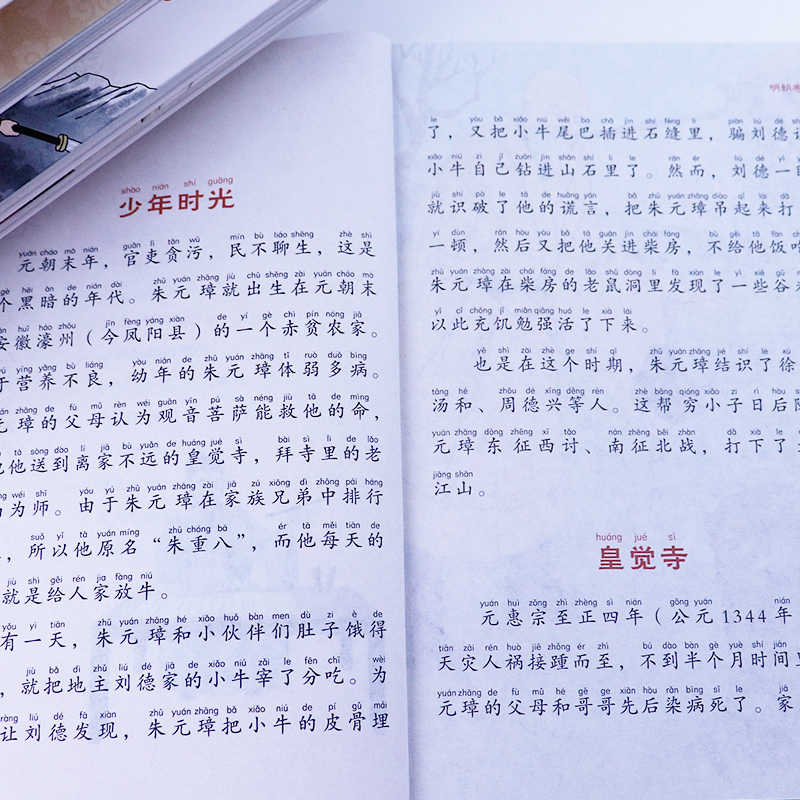 shào nián shí guāng
少年时光
yuán cháo mò nián guān lì tān wū mín bù liáo shēng zhè shì
元朝末年，官吏贪污，民不聊生，这是
gè hēi àn de nián dài zhū yuán zhāng jiù chū shēng zài yuán cháo mò
个黑暗的年代。朱元璋就出生在元朝末
huī háo zhōu jīn fèng yáng xiàn de yí gè chì pín nóng jiā
安徽濠州（今凤阳县）的一个赤贫农家。
yú yíng yǎng bù liáng yòu nián de zhū yuán zhāng tǐ ruò duō bìng
于营养不良，幼年的朱元璋体弱多病。
yuán zhāng de fù mǔ rèn wéi guān yīn pú sà néng jiù tā de mìng
元璋的父母认为观音菩萨能救他的命，
tā sòng dào lí jiā bù yuǎn de huáng jué sì bài sì lǐ de lǎo
他送到离家不远的皇觉寺，拜寺里的老
wéi shī yóu yú zhū yuán zhāng zài jiā zú xiōng dì zhōng pái háng
为师。由于朱元璋在家族兄弟中排行
suǒ yǐ tā yuán míng zhū chóng bā ér tā měi tiān de
，所以他原名“朱重八”，而他每天的
jiù shì gěi rén jia fàng niú
就是给人家放牛。
yǒu yì tiān zhū yuán zhāng hé xiǎo huǒ bàn men dù zi è de
有一天，朱元璋和小伙伴们肚子饿得
jiù bǎ dì zhǔ liú dé jiā de xiǎo niú zǎi le fēn chī wèi
，就把地主刘德家的小牛宰了分吃。为
ràng liú dé fā xiàn zhū yuán zhāng bǎ xiǎo niú de pí gǔ mái
让刘德发现，朱元璋把小牛的皮骨埋
明朝
le yòu bǎ xiǎo niú wěi ba chā jìn shí fèng lǐ piàn liú dé
了，又把小牛尾巴插进石缝里，骗刘德
xiǎo niú zì jǐ zuān jìn shān shí lǐ le rán ér liú dé yì
小牛自己钻进山石里了。然而，刘德一
jiù shí pò le tā de huǎng yán bǎ zhū yuán zhāng diào qǐ lái dǎ
就识破了他的谎言，把朱元璋吊起来打
yí dùn rán hòu yòu bǎ tā guān jìn chái fáng bù gěi tā fàn
一顿，然后又把他关进柴房，不给他饭
zhū yuán zhāng zài chái fáng de lǎo shǔ dòng lǐ fā xiàn le yì xiē gǔ
朱元璋在柴房的老鼠洞里发现了一些谷
yǐ cǐ chōng jī miǎn qiǎng huó le xià lái
以此充饥勉强活了下来。
yě shì zài zhè ge shí qī zhū yuán zhāng jié shí le xú
也是在这个时期，朱元璋结识了徐
tāng hé zhōu dé xīng děng rén zhè bāng qióng xiǎo zi rì hòu
汤和、周德兴等人。这帮穷小子日后
yuán zhāng dōng zhēng xī tǎo nán zhēng běi zhàn dǎ xià le
元璋东征西讨、南征北战，打下了
jiāng shān
江山。
huáng jué sì
皇觉寺
yuán huì zōng zhì zhèng sì nián gōng yuán nián
元惠宗至正四年（公元1344年
tiān zāi rén huò jiē zhǒng ér zhì bú dào bàn gè yuè shí jiān
天灾人祸接踵而至，不到半个月时间
yuán zhāng de fù mǔ hé gē ge xiān hòu rǎn bìng sǐ le jiā
元璋的父母和哥哥先后染病死了。家